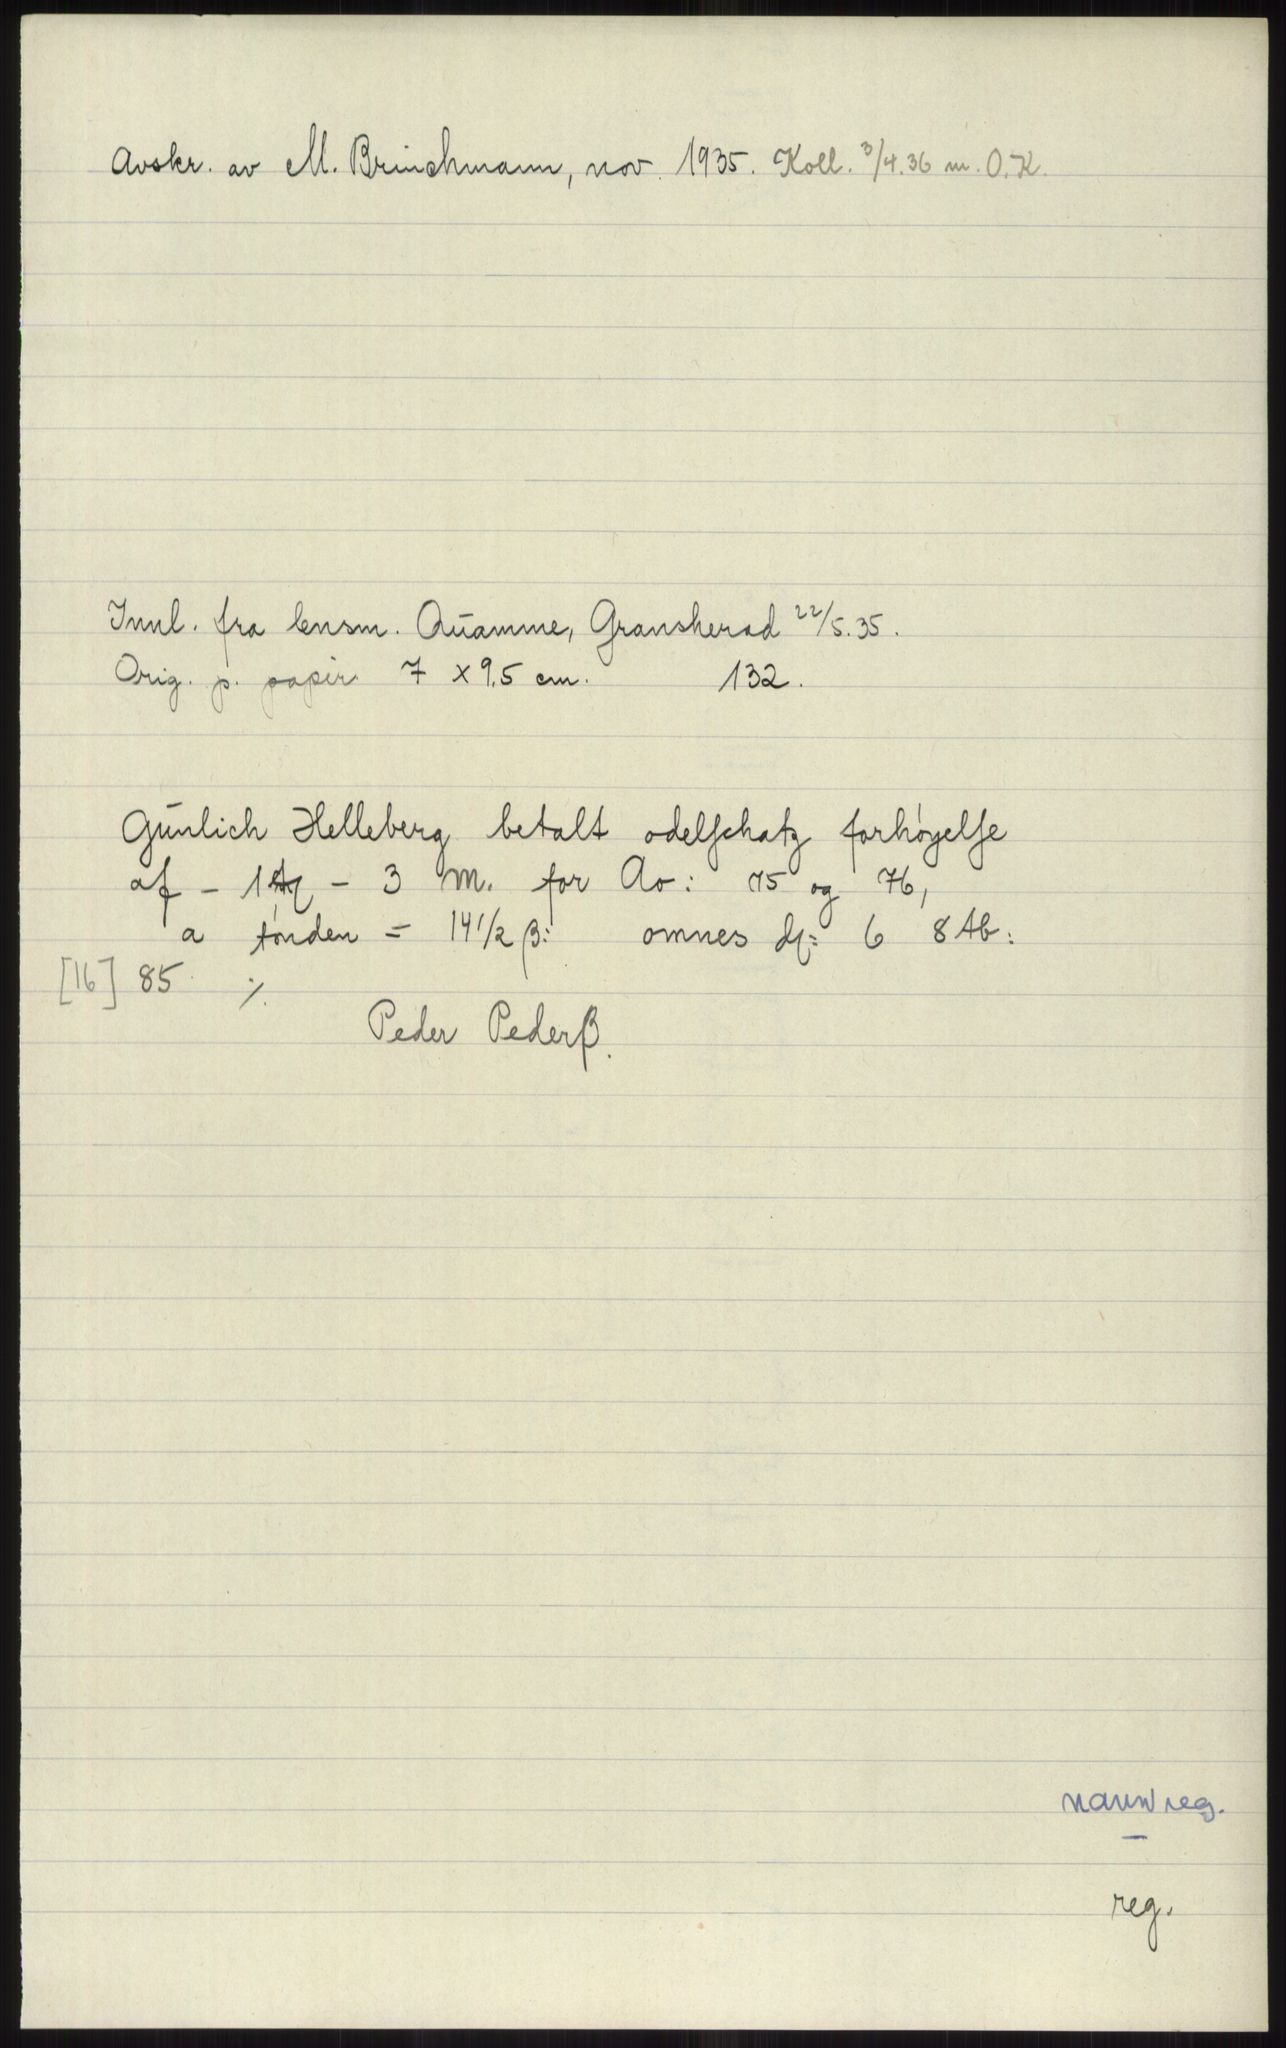 Avskr. av M. Brinchmann, nov. 1935. Koll. 3/4.36 m. O.K.
Innl. fra lensm. Qŭamme, Gransherad 22/5.35.
Orig. p. papir 7 x 9,5 cm. 132.
Gŭnlich Helleberg betalt odelschatz forhøyelse
af - 1 - 3 M. for Ao: 75 og 76,
a tønden = 14 1/2 β: omnes 6 8
[16] 85 ·/.
Peder Pederβ.
navnreg.
reg.